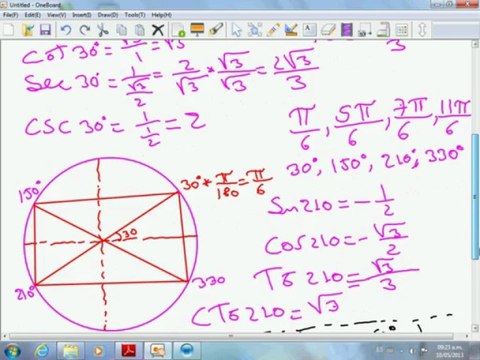 Untitled - OneBoard
File(F) Edit(E) View(V) Insert(I) Draw(D) Tools(T) Help(H)
Cot 30° = = √3
3
Sec 30° = 1/(√3/2) = 2/√3 * √3/√3 = 2√3/3
CSC 30° = 1/(1/2) = 2
π/6, 5π/6, 7π/6, 11π/6
30°, 150°, 210°, 330°
150°
30° * π/180 = π/6
30
210°
330
Sen 210 = -1/2
Cos 210 = -√3/2
TG 210 = √3/3
CTG 210 = √3
ES
09:23 a.m.
10/05/2013